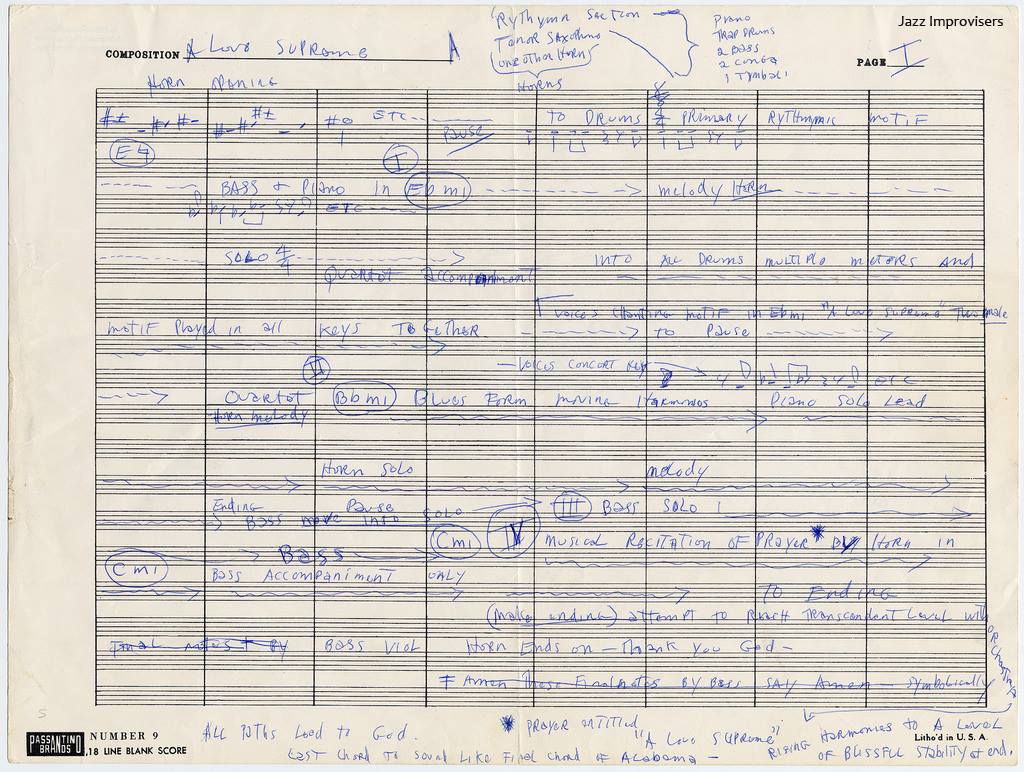 Jazz Improvisers
COMPOSITION A Love Supreme A
Rythymn Section
Tenor Saxophone
(one other horn)
Horns
Piano
TRAP DRUMS
2 BASS
2 CONGA
1 Tymbali
PAGE I
Horn opening
ETC
Pause
TO DRUMS PRIMARY RYTHMMIC MOTIF
E♮
I
BASS + PIANO IN Eb mi melody Horn
ETC
SOLO 4/4 INTO ALL DRUMS MULTIPLE METERS AND
Quartet Accompaniment
VOICES CHANTING MOTIF IN Ebmi "A Love Supreme" Two male
MOTIF Played in all KEYS TOGETHER TO Pause
VOICES CONCERT KEY ETC
II
Quartet Bbmi BLUES FORM MOVING HARMONIES PIANO SOLO Lead
Horn melody
Horn Solo melody
Ending Pause
BASS move INTO SOLO III BASS SOLO 1
Cmi IV MUSICAL RECITATION OF PRAYER * BY HORN IN
Bass
Cmi BASS ACCOMPANIMENT ONLY
TO Ending
(make ending) attempt TO REACH TRANSCENDENT Level with
ORCHESTRA
Final notes BY BASS VIOL Horn Ends on — Thank you God —
Amen These Final notes BY BASS SAY Amen — Symbolically
RISING HARMONIES TO A LEVEL
OF BLISSFUL STABILITY at end.
ALL PATHS Lead to God.
* PRAYER ENTITLED
"A Love SUPREME"
LAST Chord TO SOUND LIKE FINAL CHORD OF ALABAMA —
5
PASSANTINO
BRANDS
NUMBER 9
18 LINE BLANK SCORE
Litho'd in U. S. A.